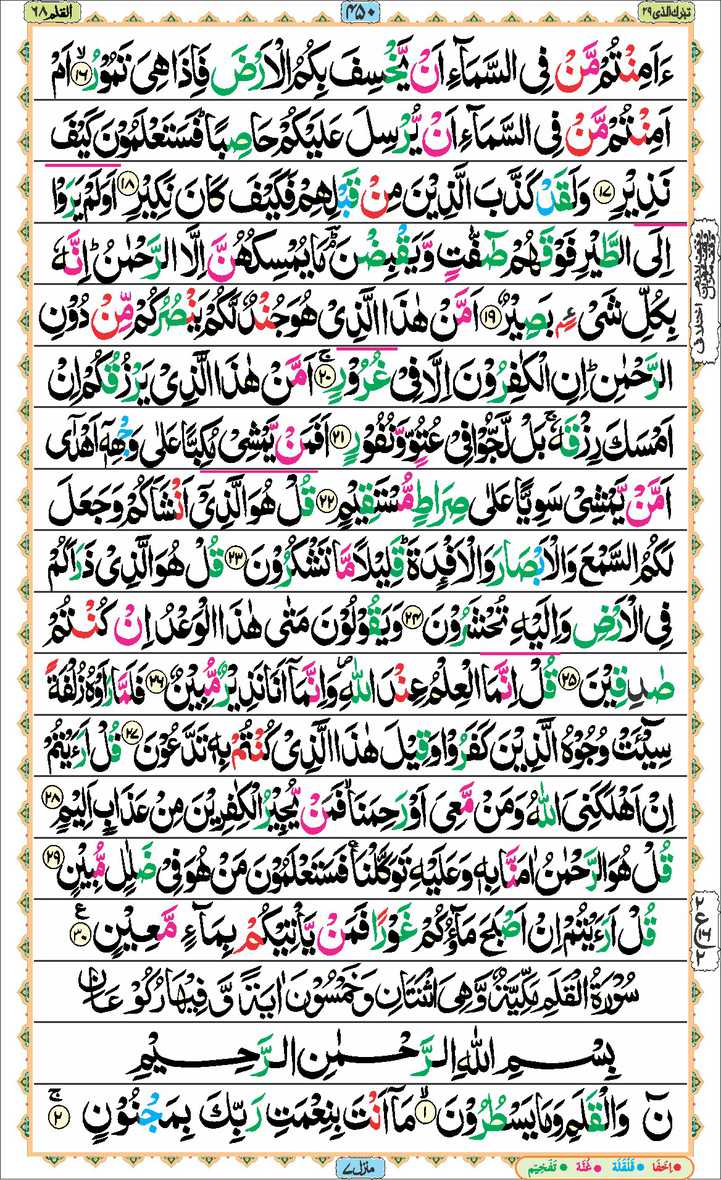 تبٰرك الذی ۲۹
۴۵۰
القلم ۶۸
ءَاَمِنْتُمْ مَّنْ فِی السَّمَآءِ اَنْ یَّخْسِفَ بِكُمُ الْاَرْضَ فَاِذَا هِیَ تَمُوْرُ ۙ﴿۱۶﴾ اَمْ
اَمِنْتُمْ مَّنْ فِی السَّمَآءِ اَنْ یُّرْسِلَ عَلَیْكُمْ حَاصِبًا ؕ فَسَتَعْلَمُوْنَ كَیْفَ
نَذِیْرِ ﴿۱۷﴾ وَلَقَدْ كَذَّبَ الَّذِیْنَ مِنْ قَبْلِهِمْ فَكَیْفَ كَانَ نَكِیْرِ ﴿۱۸﴾ اَوَلَمْ یَرَوْا
اِلَی الطَّیْرِ فَوْقَهُمْ صٰٓفّٰتٍ وَّیَقْبِضْنَ ؔۘؕ مَا یُمْسِكُهُنَّ اِلَّا الرَّحْمٰنُ ؕ اِنَّهٗ
بِكُلِّ شَیْءٍۭ بَصِیْرٌ ﴿۱۹﴾ اَمَّنْ هٰذَا الَّذِیْ هُوَ جُنْدٌ لَّكُمْ یَنْصُرُكُمْ مِّنْ دُوْنِ
الرَّحْمٰنِ ؕ اِنِ الْكٰفِرُوْنَ اِلَّا فِیْ غُرُوْرٍ ۚ﴿۲۰﴾ اَمَّنْ هٰذَا الَّذِیْ یَرْزُقُكُمْ اِنْ
اَمْسَكَ رِزْقَهٗ ۚ بَلْ لَّجُّوْا فِیْ عُتُوٍّ وَّنُفُوْرٍ ﴿۲۱﴾ اَفَمَنْ یَّمْشِیْ مُكِبًّا عَلٰی وَجْهِهٖۤ اَهْدٰۤی
اَمَّنْ یَّمْشِیْ سَوِیًّا عَلٰی صِرَاطٍ مُّسْتَقِیْمٍ ﴿۲۲﴾ قُلْ هُوَ الَّذِیْۤ اَنْشَاَكُمْ وَجَعَلَ
لَكُمُ السَّمْعَ وَالْاَبْصَارَ وَالْاَفْـِٕدَةَ ؕ قَلِیْلًا مَّا تَشْكُرُوْنَ ﴿۲۳﴾ قُلْ هُوَ الَّذِیْ ذَرَاَكُمْ
فِی الْاَرْضِ وَاِلَیْهِ تُحْشَرُوْنَ ﴿۲۴﴾ وَیَقُوْلُوْنَ مَتٰی هٰذَا الْوَعْدُ اِنْ كُنْتُمْ
صٰدِقِیْنَ ﴿۲۵﴾ قُلْ اِنَّمَا الْعِلْمُ عِنْدَ اللّٰهِ ۪ وَاِنَّمَاۤ اَنَا نَذِیْرٌ مُّبِیْنٌ ﴿۲۶﴾ فَلَمَّا رَاَوْهُ زُلْفَةً
سِیْٓـَٔتْ وُجُوْهُ الَّذِیْنَ كَفَرُوْا وَقِیْلَ هٰذَا الَّذِیْ كُنْتُمْ بِهٖ تَدَّعُوْنَ ﴿۲۷﴾ قُلْ اَرَءَیْتُمْ
اِنْ اَهْلَكَنِیَ اللّٰهُ وَمَنْ مَّعِیَ اَوْ رَحِمَنَا ۙ فَمَنْ یُّجِیْرُ الْكٰفِرِیْنَ مِنْ عَذَابٍ اَلِیْمٍ ﴿۲۸﴾
قُلْ هُوَ الرَّحْمٰنُ اٰمَنَّا بِهٖ وَعَلَیْهِ تَوَكَّلْنَا ۚ فَسَتَعْلَمُوْنَ مَنْ هُوَ فِیْ ضَلٰلٍ مُّبِیْنٍ ﴿۲۹﴾
قُلْ اَرَءَیْتُمْ اِنْ اَصْبَحَ مَآؤُكُمْ غَوْرًا فَمَنْ یَّاْتِیْكُمْ بِمَآءٍ مَّعِیْنٍ ﴿۳۰﴾ ع
۲ ع ۱۶ ۲
سُوْرَةُ الْقَلَمِ مَكِّیَّةٌ وَّهِیَ اثْنَتَانِ وَخَمْسُوْنَ اٰیَةً وَّفِیْهَا رُكُوْعَانِ
بِسْمِ اللّٰهِ الرَّحْمٰنِ الرَّحِیْمِ
نٓ وَالْقَلَمِ وَمَا یَسْطُرُوْنَ ۙ﴿۱﴾ مَاۤ اَنْتَ بِنِعْمَةِ رَبِّكَ بِمَجْنُوْنٍ ۚ﴿۲﴾
منزل ۷
اِخفا قَلقَلَه غُنَّه تَفخِیم